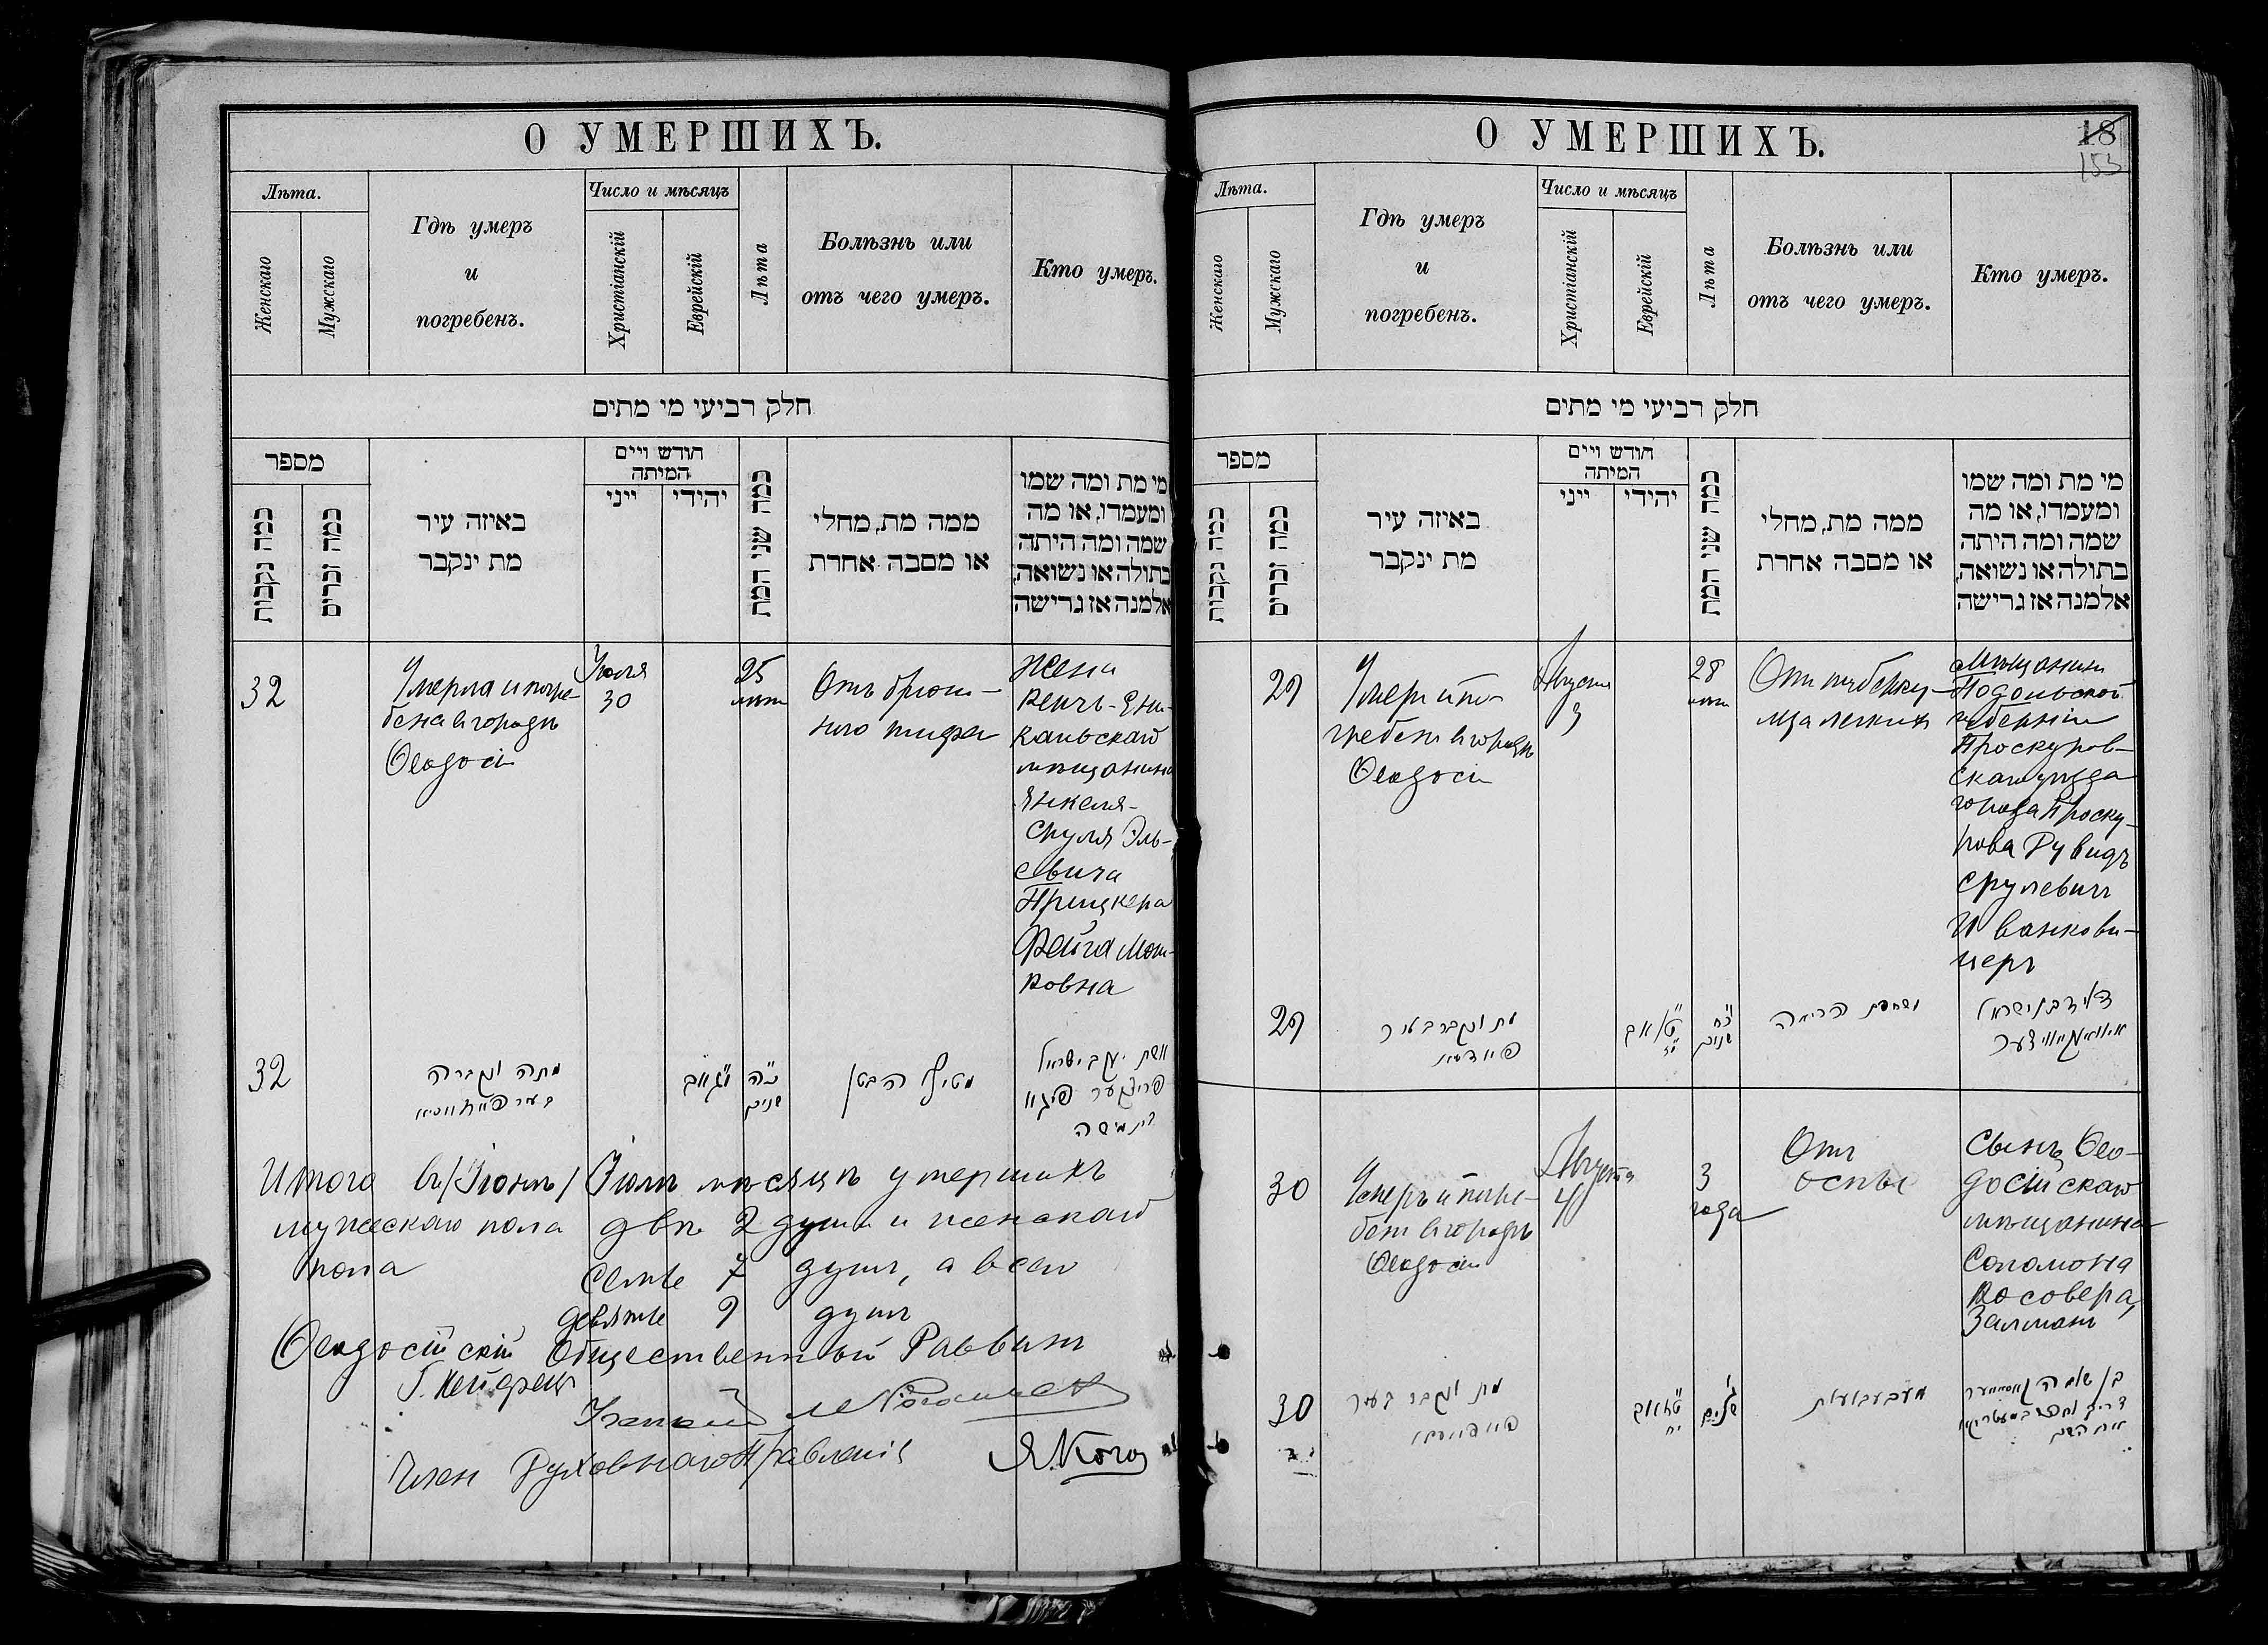 О УМЕРШИХЪ.
Лѣта.
Женскаго
Мужскаго
Гдѣ умеръ
и
погребенъ.
Число и мѣсяцъ
Христіанскій
Еврейскій
Лѣта
Болѣзнь или
отъ чего умеръ.
Кто умеръ.
חלק רביעי מי מתים
מספר
כמה נקבות
כמה זכרים
באיזה עיר
מת ינקבר
חודש ויים
המיתה
ייני
יהידי
כמה שני המת
ממה מת, מחלי
או מסבה אחרת
מי מת ומה שמו
ומעמדו, או מה
שמה ומה היתה
בתולה או נשואה,
אלמנה אז גרישה
32
Умерла и погре-
бена в городѣ
Ѳеодосіи
Іюля
30
25
лѣтъ
Отъ брюш-
ного тифа
Жена
Керчь-Ени-
кальскаго
мѣщанина
Янкеля-
Сруля Эль-
евича
Прицкера
Фейга Мош-
ковна
32
מתה ונקברה
כ״ה
שנים
אשת יעקב ישראל
Итого въ /Іюнѣ/ Іюлѣ мѣсяцѣ умершихъ
мужескаго пола двѣ 2 души и женскаго
пола семь 7 душъ, а всего
девять 9 душъ
Ѳеодосійскій Общественный Раввинъ
Членъ Духовнаго Правленія
О УМЕРШИХЪ.
18
153
Лѣта.
Женскаго
Мужскаго
Гдѣ умеръ
и
погребенъ.
Число и мѣсяцъ
Христіанскій
Еврейскій
Лѣта
Болѣзнь или
отъ чего умеръ.
Кто умеръ.
חלק רביעי מי מתים
מספר
כמה נקבות
כמה זכרים
באיזה עיר
מת ינקבר
חודש ויים
המיתה
ייני
יהידי
כמה שני המת
ממה מת, מחלי
או מסבה אחרת
מי מת ומה שמו
ומעמדו, או מה
שמה ומה היתה
בתולה או נשואה,
אלמנה אז גרישה
29
Умеръ и по-
гребенъ в городѣ
Ѳеодосіи
Августа
3
28
лѣтъ
Отъ туберку-
леза легкихъ
Мѣщанинъ
Подольской
губерніи
Проскуров-
скаго уѣзда
города Проску-
рова Рувидъ
Срулевичъ
Иванкови-
церъ
29
מת ונקבר בעיר
כ״ח
שנים
שחפת הריאה
30
Умеръ и погре-
бенъ в городѣ
Ѳеодосіи
Августа
4
3
года
Отъ
оспы
Сынъ Ѳео-
досійскаго
мѣщанина
Соломона
Косовера,
Залманъ
30
מת ונקבר בעיר
אבעבועות